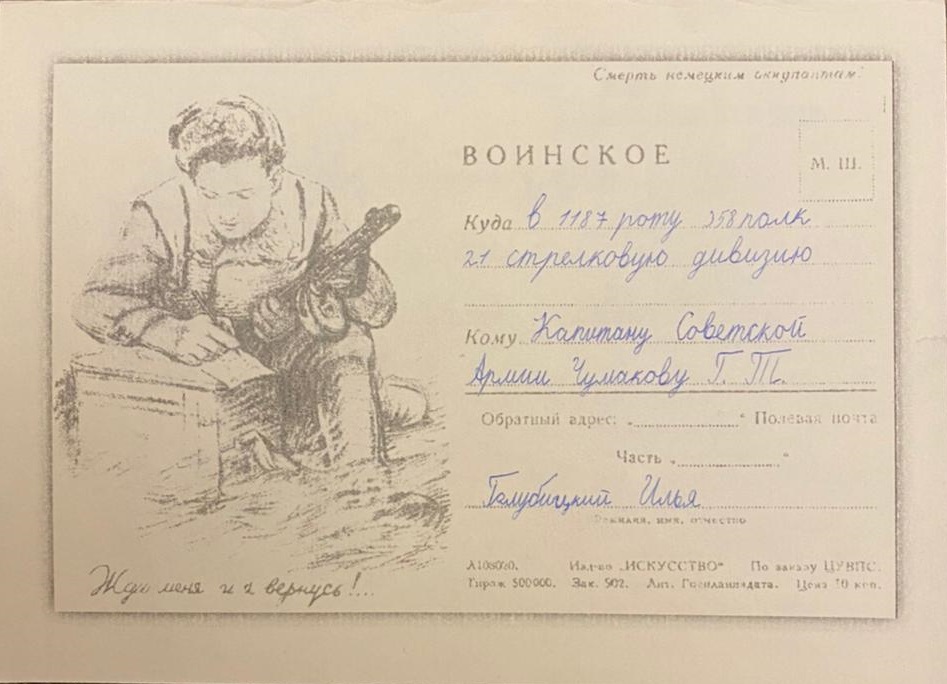 Смерть немецким оккупантам!
ВОИНСКОЕ
М. Ш.
Куда в 1187 роту 358 полк
21 стрелковую дивизию
Кому Капитану Советской
Армии Чумакову Г. Т.
Обратный адрес: „ “ Полевая почта
Часть „ “
Голубицкий Илья
Фамилия, имя, отчество
Жди меня и я вернусь!...
Изд-во „ИСКУССТВО“ По заказу ЦУВПС.
Тираж 500000. Зак. 902. Цена 10 коп.